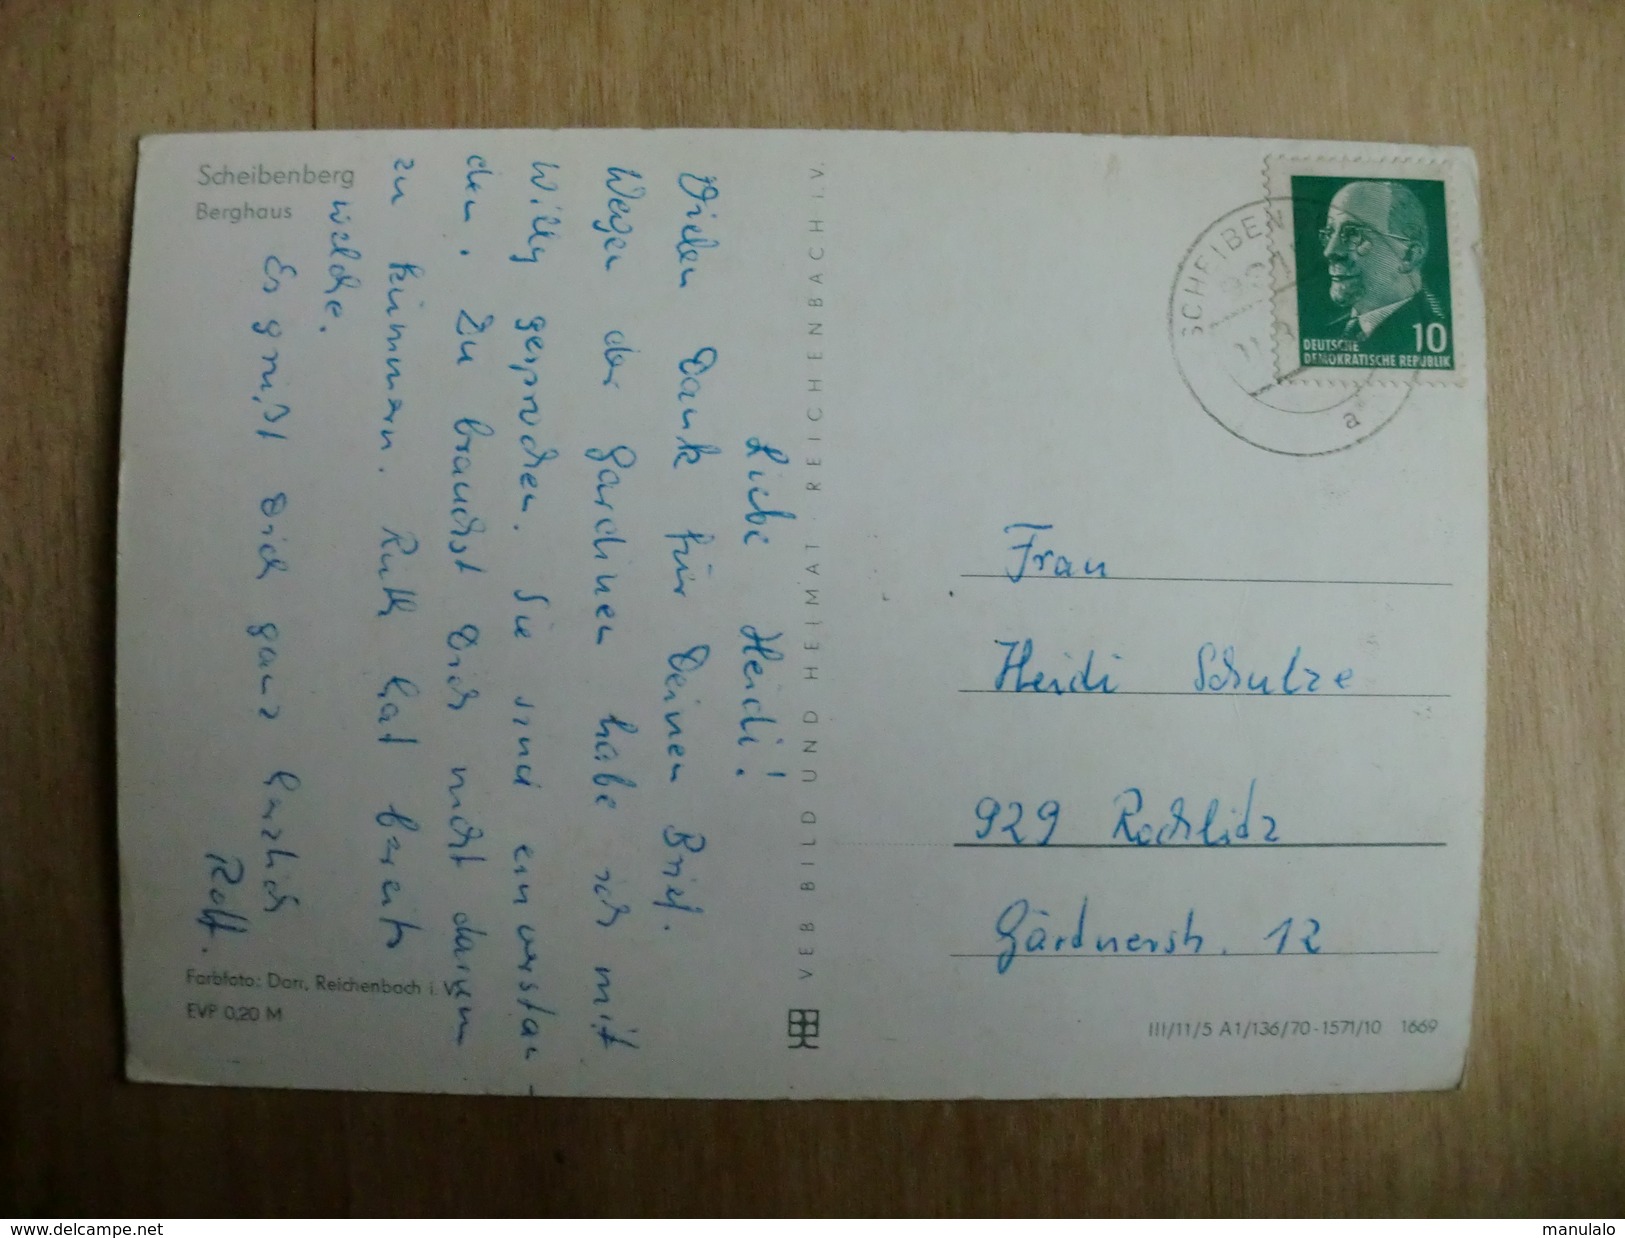 Scheibenberg
Berghaus
Liebe Heidi!
Vielen Dank für Deinen Brief.
Wegen der Gardinen habe ich mit
Willy gesprochen. Sie sind einverstan
den. Du brauchst Dich nicht darum
zu kümmern. Ruth hat bereits
welche.
Es grüßt Dich ganz herzlich
Rolf.
Farbfoto: Darr, Reichenbach i. V.
EVP 0,20 M
VEB BILD UND HEIMAT REICHENBACH I.V.
SCHEIBEN
a
10
DEUTSCHE
DEMOKRATISCHE REPUBLIK
Frau
Heidi Schulze
929 Rochlitz
Gärtnerstr. 12
III/11/5 A1/136/70-1571/10 1669
www.delcampe.net
manulalo